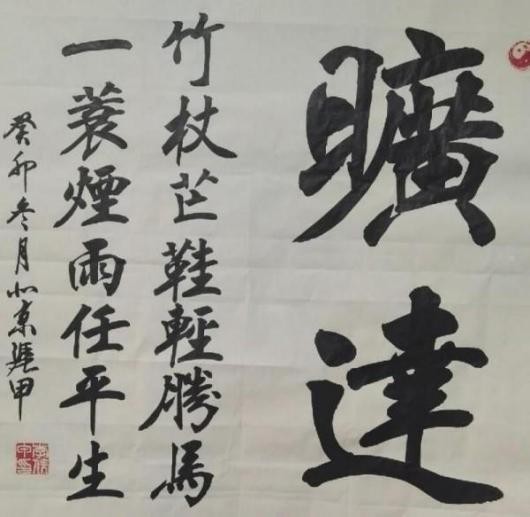 曠達
竹杖芒鞋輕勝馬
一蓑煙雨任平生
癸卯冬月小東張甲